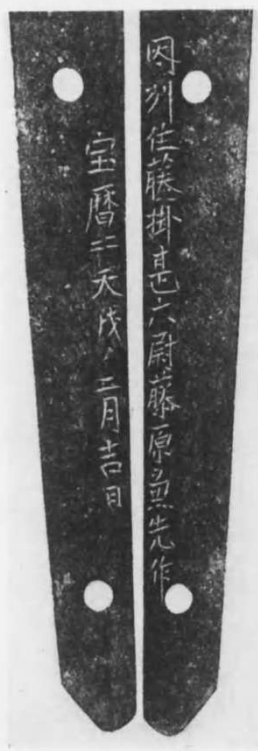 因州住藤掛甚六尉藤原兼先作
宝暦二二天戌ノ二月吉日